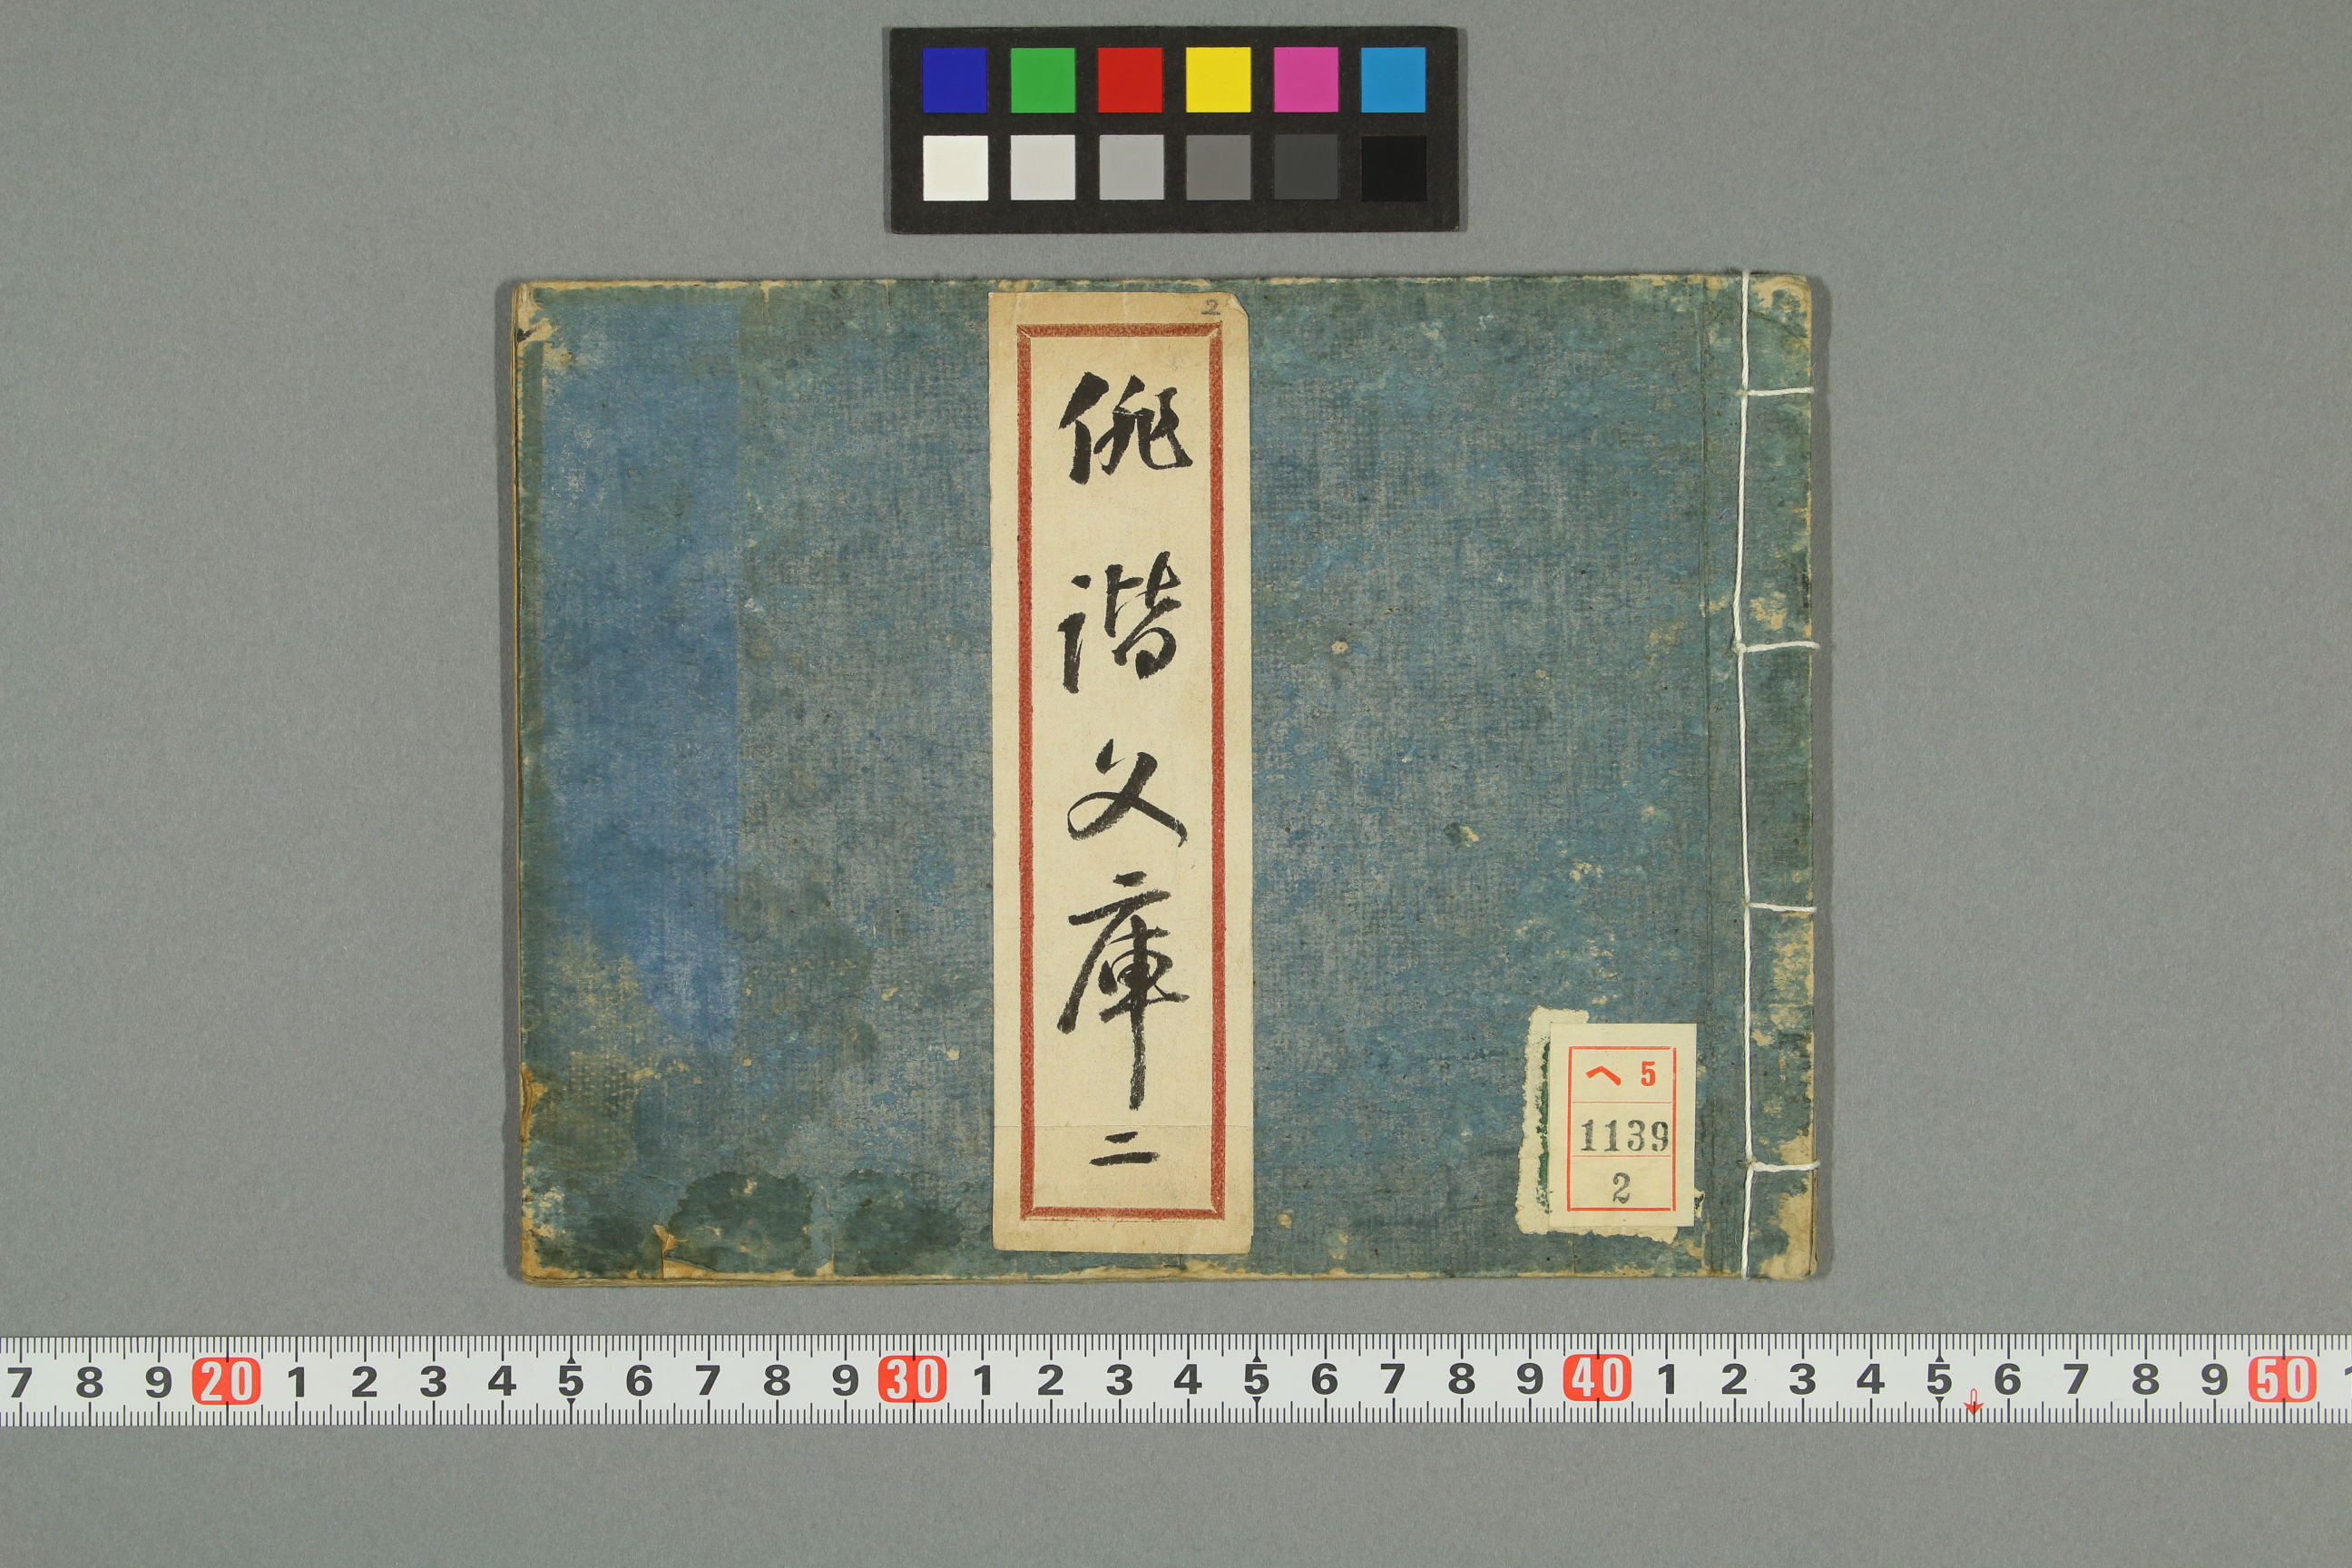 2
俳諧文庫二
ヘ 5
1139
2
7 8 9 20 1 2 3 4 5 6 7 8 9 30 1 2 3 4 5 6 7 8 9 40 1 2 3 4 5 6 7 8 9 50